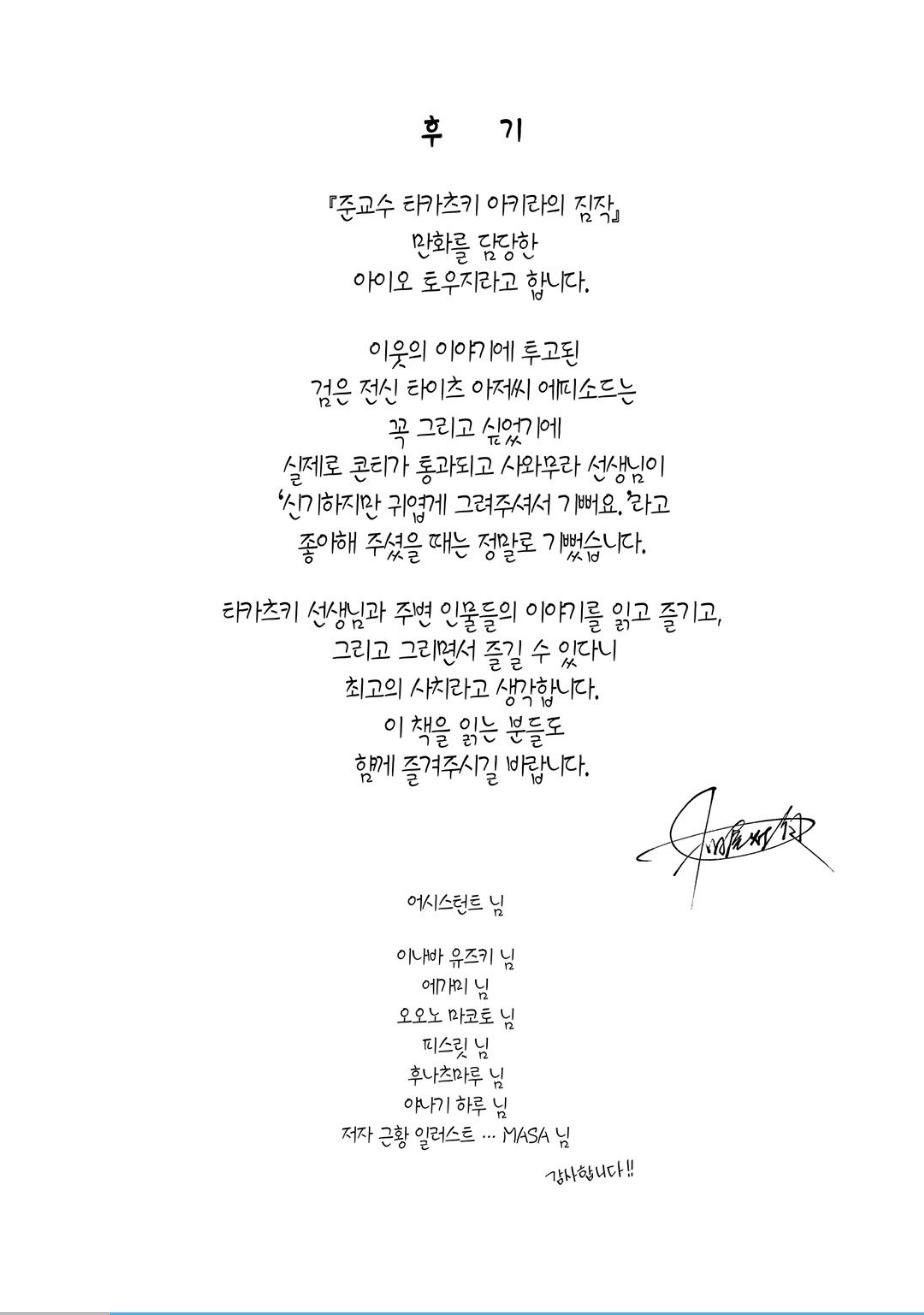 후 기
『준교수 타카츠키 아키라의 짐작』
만화를 담당한
아이오 토우지라고 합니다.
이웃의 이야기에 투고된
검은 전신 타이츠 아저씨 에피소드는
꼭 그리고 싶었기에
실제로 콘티가 통과되고 사와무라 선생님이
‘신기하지만 귀엽게 그려주셔서 기뻐요.’라고
좋아해 주셨을 때는 정말로 기뻤습니다.
타카츠키 선생님과 주변 인물들의 이야기를 읽고 즐기고,
그리고 그리면서 즐길 수 있다니
최고의 사치라고 생각합니다.
이 책을 읽는 분들도
함께 즐겨주시길 바랍니다.
어시스턴트 님
이나바 유즈키 님
에가미 님
오오노 마코토 님
피스릿 님
후나츠마루 님
야나기 하루 님
저자 근황 일러스트 … MASA 님
감사합니다!!